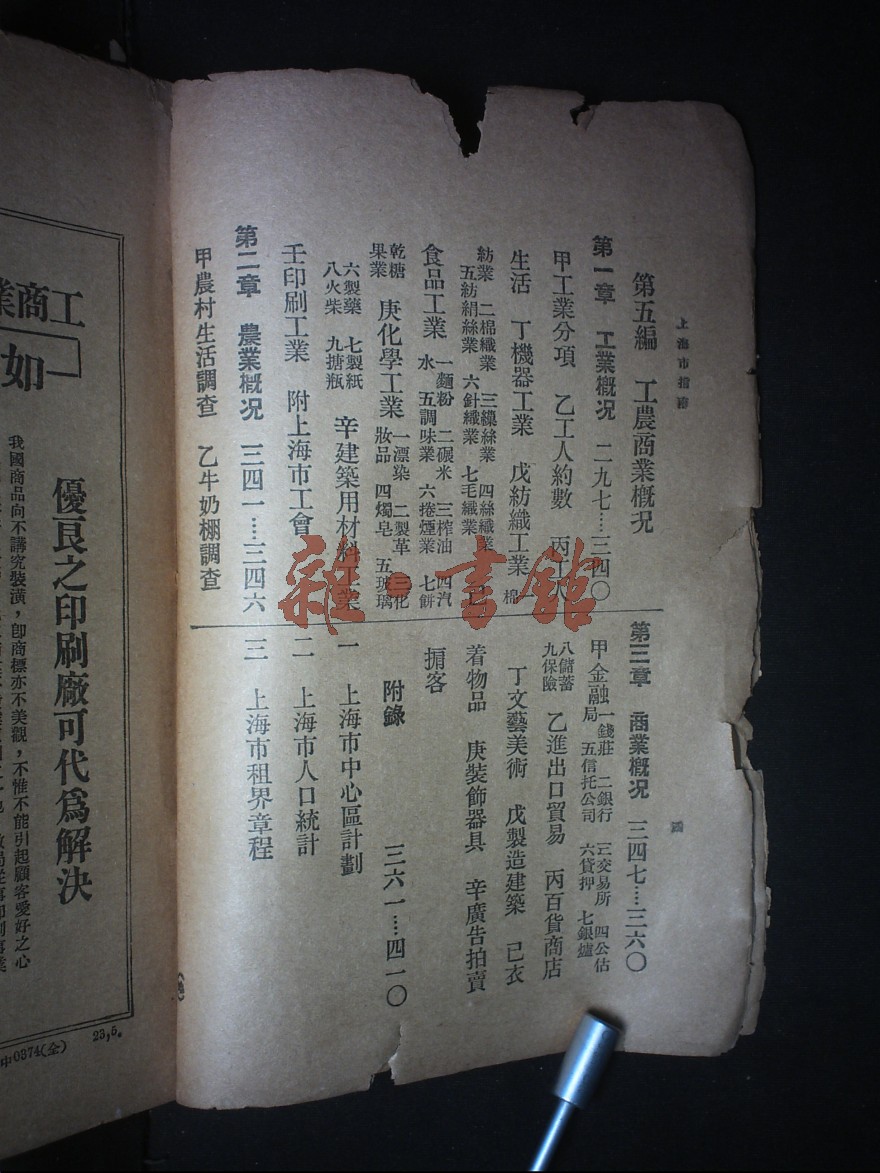 上海市指南
四
第五編　工農商業概況
第一章　工業概況　二九七……三四〇
甲工業分項　乙工人約數　丙工人
生活　丁機器工業　戊紡織工業　棉
紡業　二棉織業　三繅絲業　四絲織業
五紡絹絲業　六針織業　七毛織業　己
食品工業　一麵粉　二碾米　三榨油　四汽
水　五調味業　六捲煙業　七餅
乾糖
果業　庚化學工業　一漂染　二製革　三化
妝品　四燭皂　五玻璃
六製藥　七製紙
八火柴　九搪瓶　辛建築用材料工業
壬印刷工業　附上海市工會
第二章　農業概況　三四一……三四六
甲農村生活調查　乙牛奶棚調查
第三章　商業概況　三四七……三六〇
甲金融　一錢莊　二銀行　三交易所　四公估
局　五信托公司　六貸押　七銀爐
八儲蓄
九保險　乙進出口貿易　丙百貨商店
丁文藝美術　戊製造建築　己衣
着物品　庚裝飾器具　辛廣告拍賣
掮客
附錄　三六一……四一〇
一　上海市中心區計劃
二　上海市人口統計
三　上海市租界章程
雜·書館
工商業
如
優良之印刷廠可代爲解決
我國商品向不講究裝潢，卽商標亦不美觀，不惟不能引起顧客愛好之心
中0374(全)
23,5.